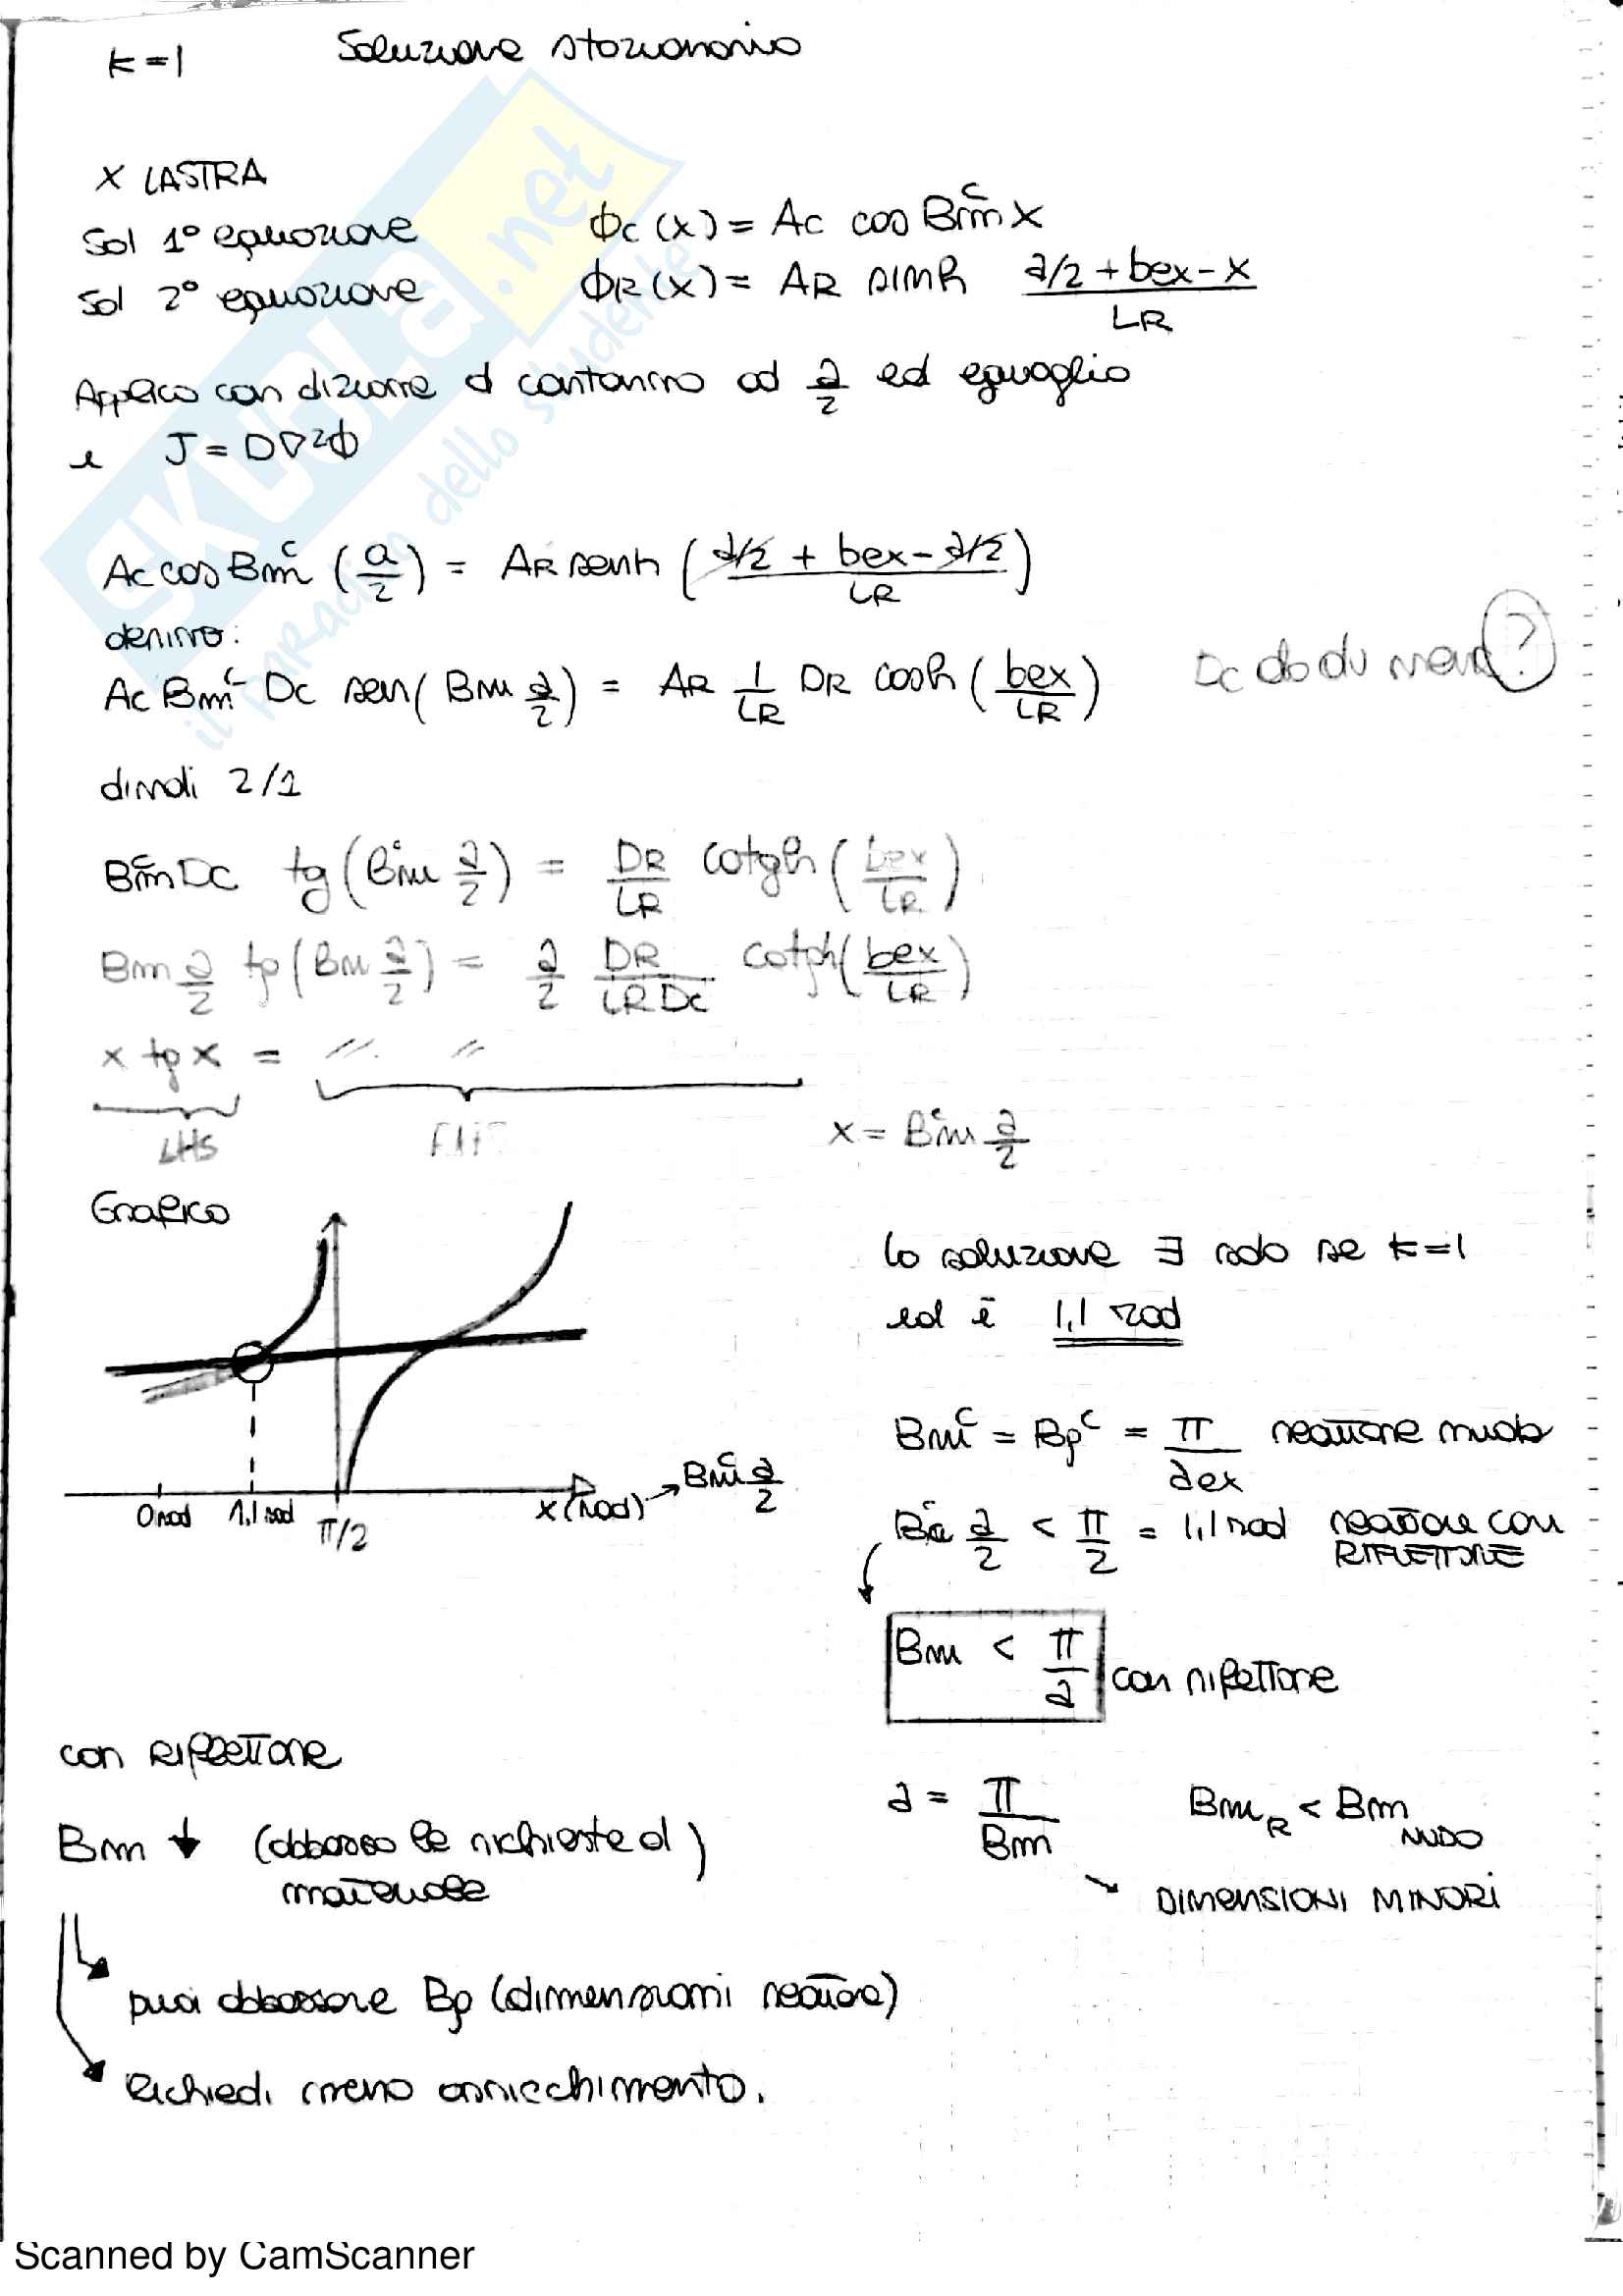 k=1 Soluzione stazionaria
x LASTRA
Sol 1° equazione ϕc (x) = Ac cos Bm^c x
Sol 2° equazione ϕR (x) = AR sinh (a/2 + bex - x)/LR
Applico condizione al contorno ad a/2 ed eguaglio
e J = D∇²ϕ
Ac cos Bm^c (a/2) = AR senh ((a/2 + bex - a/2)/LR)
derivo:
Ac Bm^c Dc sen(Bm a/2) = AR 1/LR DR cosh (bex/LR) Dc da dv viene ?
dividi 2/1
Bm^c Dc tg(Bm^c a/2) = DR/LR cotgh (bex/LR)
Bm a/2 tg(Bm a/2) = a/2 DR/(LR Dc) cotgh(bex/LR)
x tg x = // //
LHS
x = Bm^c a/2
Grafico
La soluzione ∃ solo se k=1
ed è 1,1 rad
0 rad 1,1 rad π/2 x (rad) → Bm^c a/2
Bm^c = Bp^c = π/aex reattore nudo
a/2 < π/2 = 1,1 rad reattore con RIFLETTORE
Bm < π/a con riflettore
con RIFLETTORE
a = π/Bm BmR < Bm NUDO
Bm ↓ (abbasso le richieste d materiale)
DIMENSIONI MINORI
puoi abbassare Bp (dimensioni reattore)
Richiedi meno arricchimento.
SKUOLA.net
il paradiso dello studente
Scanned by CamScanner